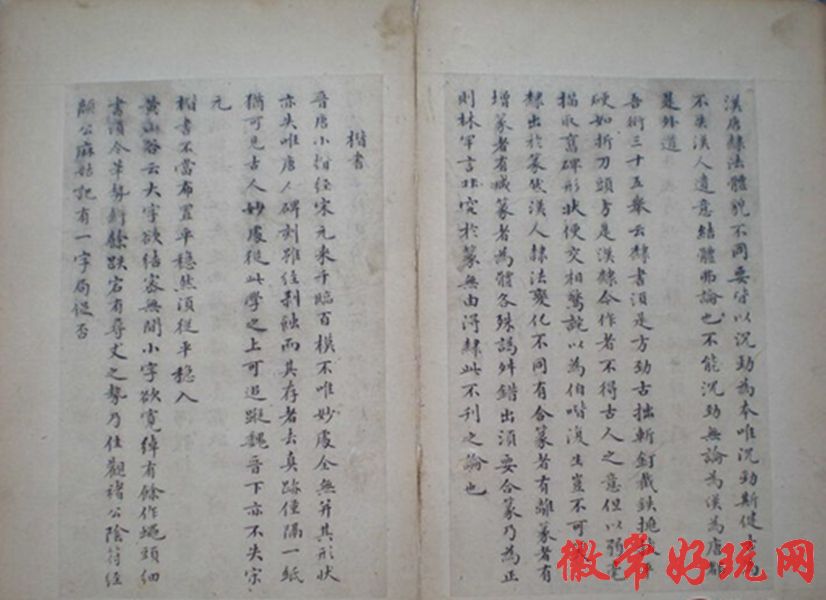 漢唐隸法體貌不同要皆以沉勁為本唯沉勁斯健
不失漢人遺意結體弗論也不能沉勁無論為漢為唐都
是外道
吾衍三十五舉云隸書須是方勁古拙斬釘截鐵挑拔平
硬如折刀頭方是漢隸今作者不得古人之意但以弱毫
描取舊碑形狀便交相驚詫以為伯喈復生豈不可
隸出於篆然漢人隸法變化不同有合篆者有離篆者有
增篆者有減篆者為體各殊譌舛錯出須要合篆乃為正
則林罕言非究於篆無由得隸此不刊之論也
楷書
晉唐小楷經宋元來千臨百模不唯妙處全無并其形狀
亦失唯唐人碑刻雖經剥蝕而其存者去真跡僅隔一紙
猶可見古人妙處從此學之上可追蹤魏晉下亦不失宋
元
楷書不當布置平穩然須從平穩入
黃山谷云大字欲結密無間小字欲寬綽有餘作蠅頭細
書須令筆勢紆餘跌宕有尋丈之勢乃佳觀褚公陰符經
顏公麻姑記有一字局促否
徽常好玩网